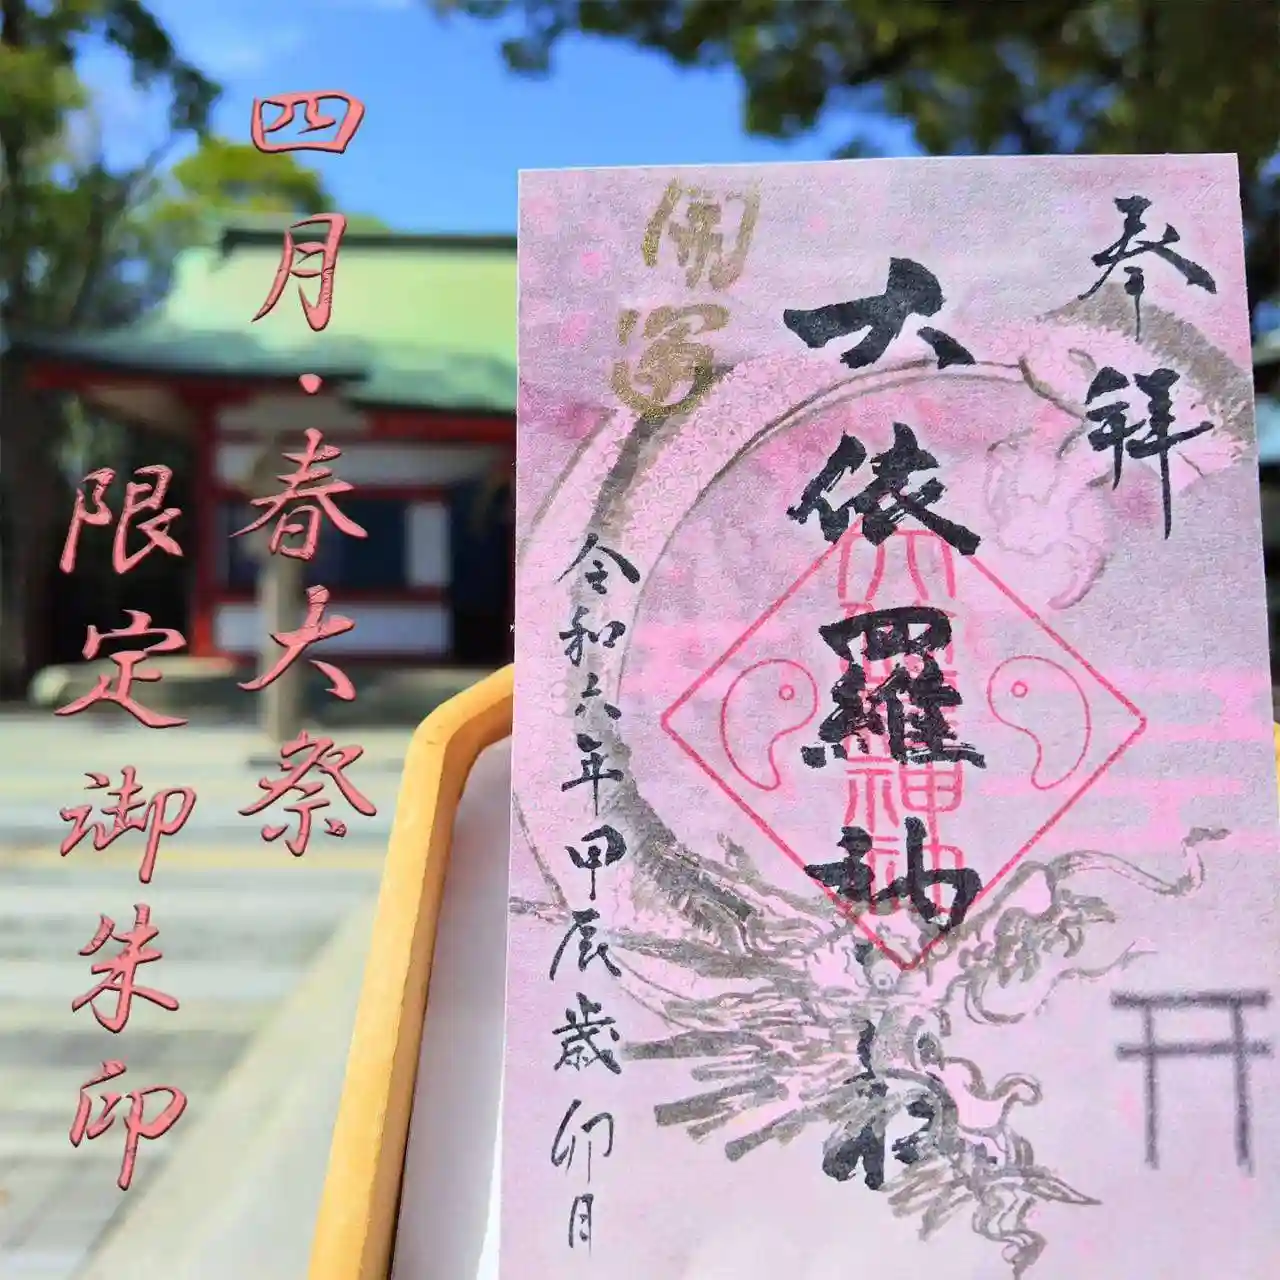 四月・春大祭
限定御朱印
奉拝
大依羅神社
開運
令和六年甲辰歳卯月
大依羅神社